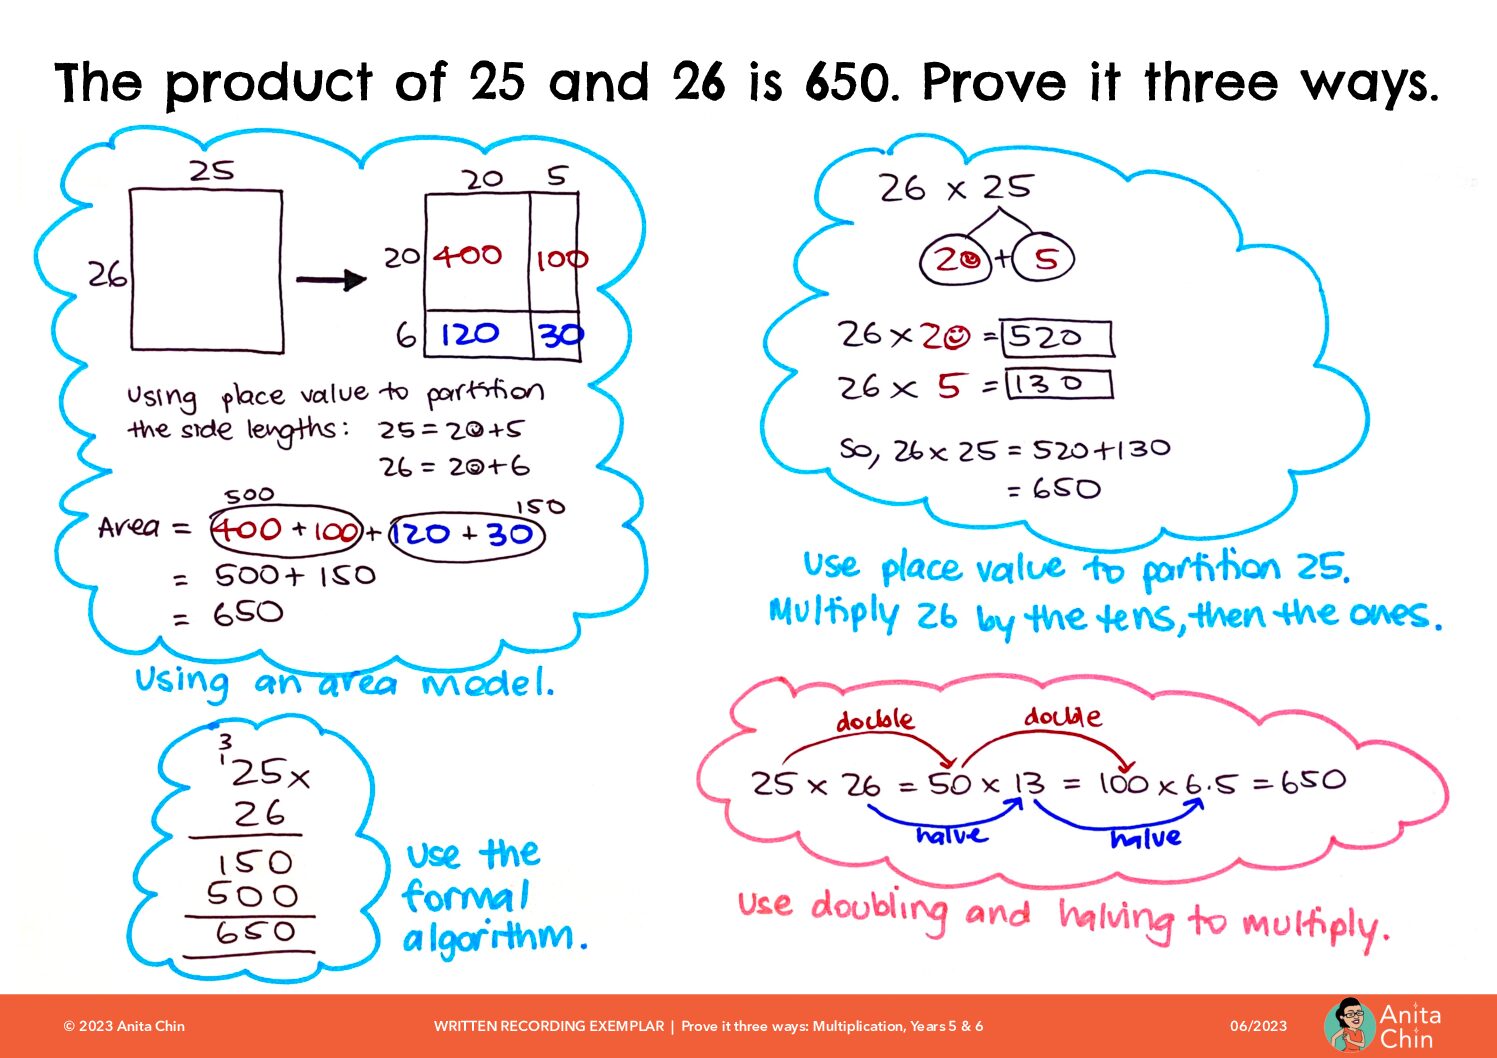 The product of 25 and 26 is 650. Prove it three ways.
25
26
20 5
20 400 100
6 120 30
Using place value to partition
the side lengths: 25 = 20+5
26 = 20+6
500 150
Area = 400 + 100 + 120 + 30
= 500 + 150
= 650
Using an area model.
26 x 25
20 + 5
26 x 20 = 520
26 x 5 = 130
So, 26 x 25 = 520+130
= 650
Use place value to partition 25.
Multiply 26 by the tens, then the ones.
3
1 25 x
26
150
500
650
Use the
formal
algorithm.
double double
25 x 26 = 50 x 13 = 100 x 6.5 = 650
halve halve
Use doubling and halving to multiply.
© 2023 Anita Chin
WRITTEN RECORDING EXEMPLAR | Prove it three ways: Multiplication, Years 5 & 6
06/2023
Anita
Chin